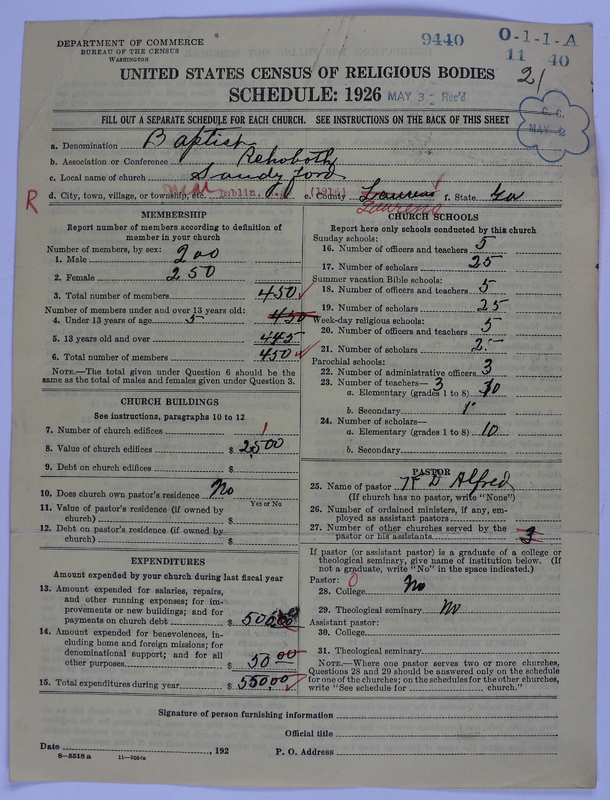 DEPARTMENT OF COMMERCE
BUREAU OF THE CENSUS
WASHINGTON
9440
O-1-1-A
11 40
21
UNITED STATES CENSUS OF RELIGIOUS BODIES
SCHEDULE: 1926
MAY 3- Rec'd
C. C.
MAY
FILL OUT A SEPARATE SCHEDULE FOR EACH CHURCH. SEE INSTRUCTIONS ON THE BACK OF THIS SHEET
a. Denomination Baptist
b. Association or Conference Rehoboth
c. Local name of church Sandy Ford
R
d. City, town, village, or township, etc. near Dublin. (1916) e. County Laurens f. State Ga
Laurens
MEMBERSHIP
Report number of members according to definition of
member in your church
Number of members, by sex:
1. Male 200
2. Female 250
3. Total number of members 450
Number of members under and over 13 years old: 450
4. Under 13 years of age 5
5. 13 years old and over 445
6. Total number of members 450
NOTE.—The total given under Question 6 should be the
same as the total of males and females given under Question 3.
CHURCH BUILDINGS
See instructions, paragraphs 10 to 12
7. Number of church edifices 1
8. Value of church edifices $ 2,500
9. Debt on church edifices $
10. Does church own pastor's residence No
Yes or No
11. Value of pastor's residence (if owned by
church) $
12. Debt on pastor's residence (if owned by
church) $
EXPENDITURES
Amount expended by your church during last fiscal year
13. Amount expended for salaries, repairs,
and other running expenses; for im-
provements or new buildings; and for
payments on church debt $ 500
14. Amount expended for benevolences, in-
cluding home and foreign missions; for
denominational support; and for all
other purposes $ 50 00
15. Total expenditures during year $ 550,00
CHURCH SCHOOLS
Report here only schools conducted by this church
Sunday schools:
16. Number of officers and teachers 5
17. Number of scholars 25
Summer vacation Bible schools:
18. Number of officers and teachers 5
19. Number of scholars 25
Week-day religious schools:
20. Number of officers and teachers 5
21. Number of scholars
Parochial schools:
22. Number of administrative officers 3
23. Number of teachers— 3
a. Elementary (grades 1 to 8) 10
b. Secondary 1
24. Number of scholars—
a. Elementary (grades 1 to 8) 10
b. Secondary
PASTOR
25. Name of pastor D Alfred
(If church has no pastor, write "None")
26. Number of ordained ministers, if any, em-
ployed as assistant pastors
27. Number of other churches served by the
pastor or his assistants 3
If pastor (or assistant pastor) is a graduate of a college or
theological seminary, give name of institution below. (If
not a graduate, write "No" in the space indicated.)
Pastor: 0
28. College No
29. Theological seminary No
Assistant pastor:
30. College
31. Theological seminary
NOTE.—Where one pastor serves two or more churches,
Questions 28 and 29 should be answered only on the schedule
for one of the churches; on the schedules for the other churches,
write "See schedule for church."
Signature of person furnishing information
Official title
Date , 192 P. O. Address
8—5518 a 11—9054a